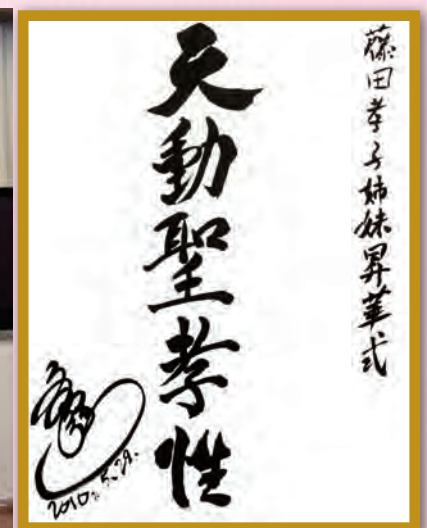 藤田孝子姉妹昇華式
天動聖孝性
2010. 5.29.